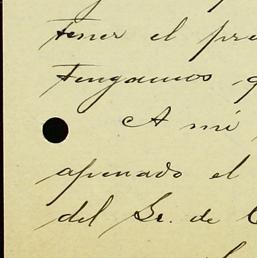 tener el pre
tengamos, q
A mi
apenado el
del Sr. de C